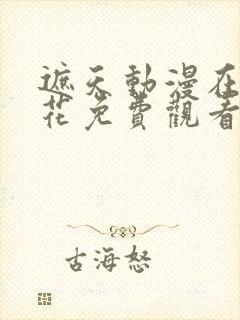 遮天動漫在
花免費觀看
古海怒